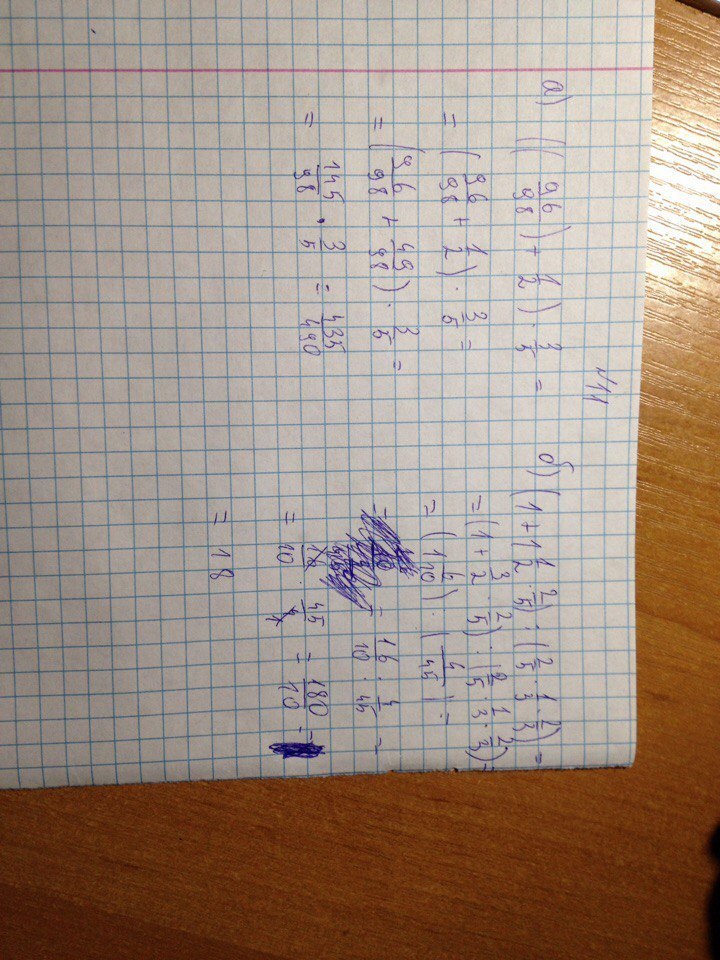 №11
а) ((96/98) + 1/2) · 3/5 =
= (96/98 + 1/2) · 3/5 =
= (96/98 + 49/98) · 3/5 =
= 145/98 · 3/5 = 435/490
б) (1 + 1 1/2 · 2/5) : (2/5 · 1/3 · 2/3) =
= (1 + 3/2 · 2/5) : (2/5 · 1/3 · 2/3) =
= (1 6/10) : (4/45) =
= 16/10 : 4/45 =
= 16/10 · 45/4 = 180/10 =
= 18